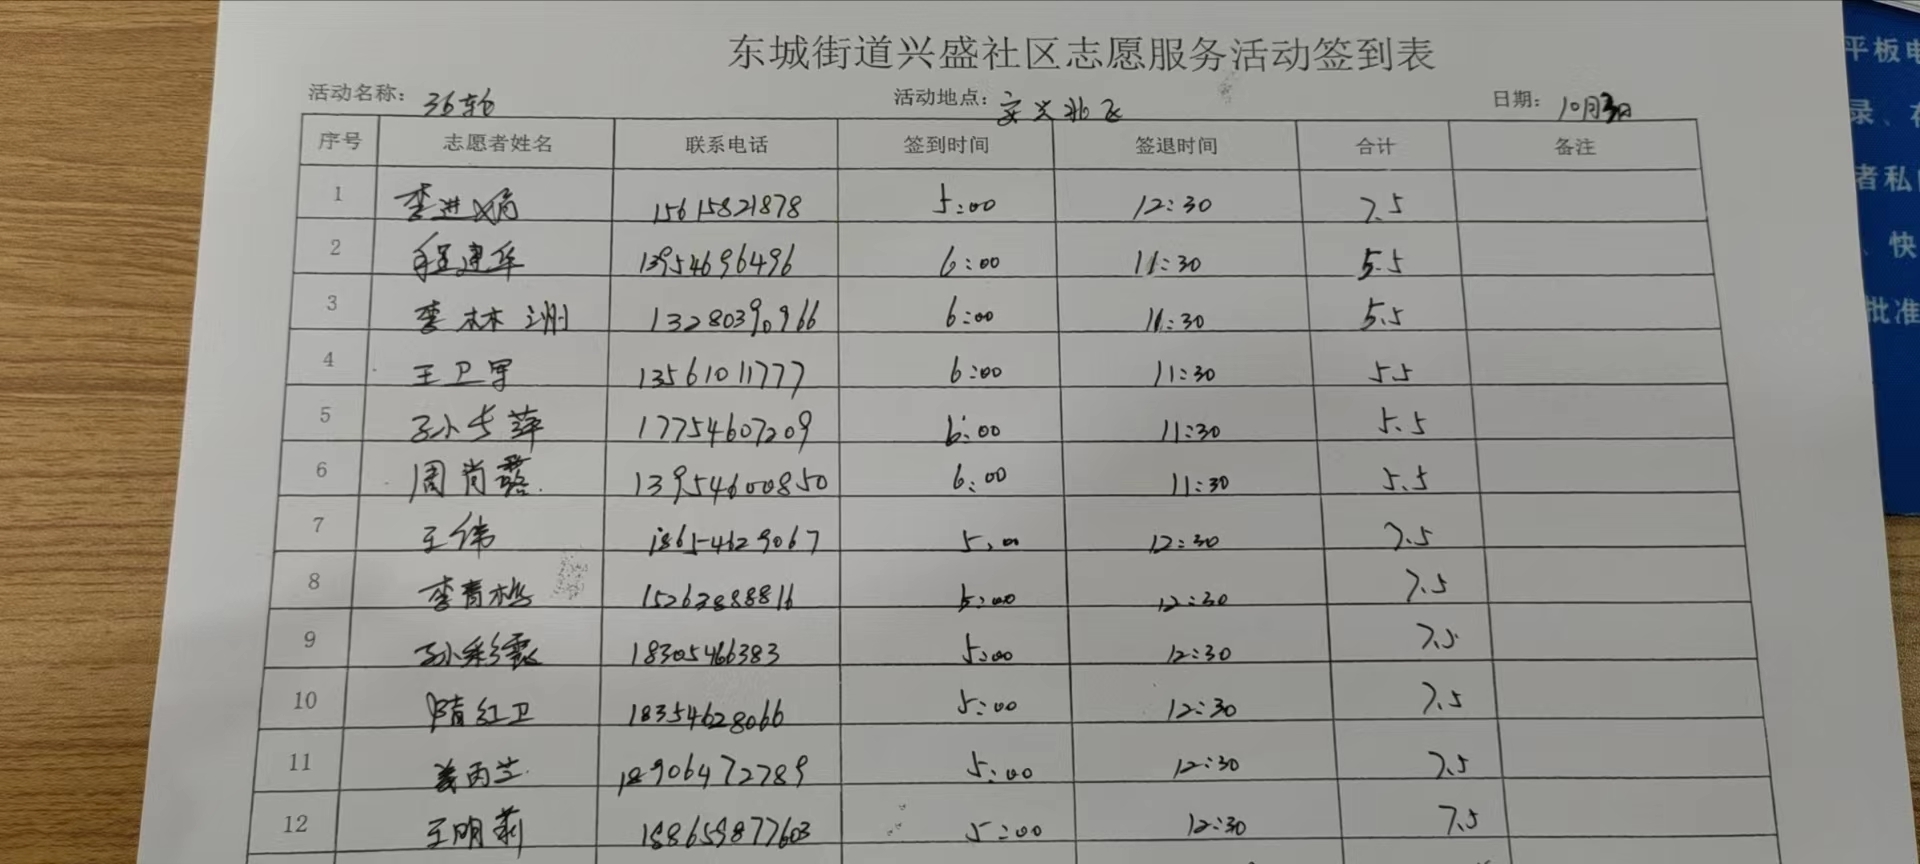 东城街道兴盛社区志愿服务活动签到表
活动名称: 36轮 活动地点: 安兴北区 日期: 10月3日
序号 志愿者姓名 联系电话 签到时间 签退时间 合计 备注
1 李进娟 15615821878 5:00 12:30 7.5
2 程建华 13954696496 6:00 11:30 5.5
3 李林洲 13280390966 6:00 11:30 5.5
4 王卫军 13561011777 6:00 11:30 5.5
5 孙长萍 17754607209 6:00 11:30 5.5
6 周肖露 13954600850 6:00 11:30 5.5
7 王伟 18654629067 5:00 12:30 7.5
8 李青 15263888816 5:00 12:30 7.5
9 孙彩霞 18305466383 5:00 12:30 7.5
10 隋红卫 18354628066 5:00 12:30 7.5
11 姜丙兰 18906472789 5:00 12:30 7.5
12 王明莉 188659877603 5:00 12:30 7.5
平板电
录、在
者私
、快
批准